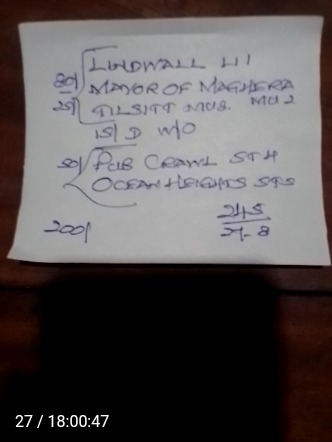 LINDWALL LI 1
80/ MAYOR OF MAGHERA
25/ TILSITT MUS. MU 2
15/ D W/O
50/ PUB CRAWL ST 4
OCEAN HEIGHTS STS
200/
245
27-8
27 / 18:00:47